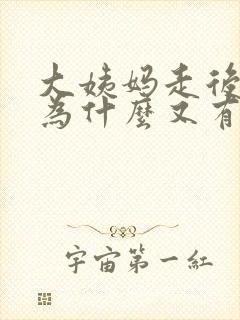 大姨妈走後
為什麼又有
宇宙第一紅